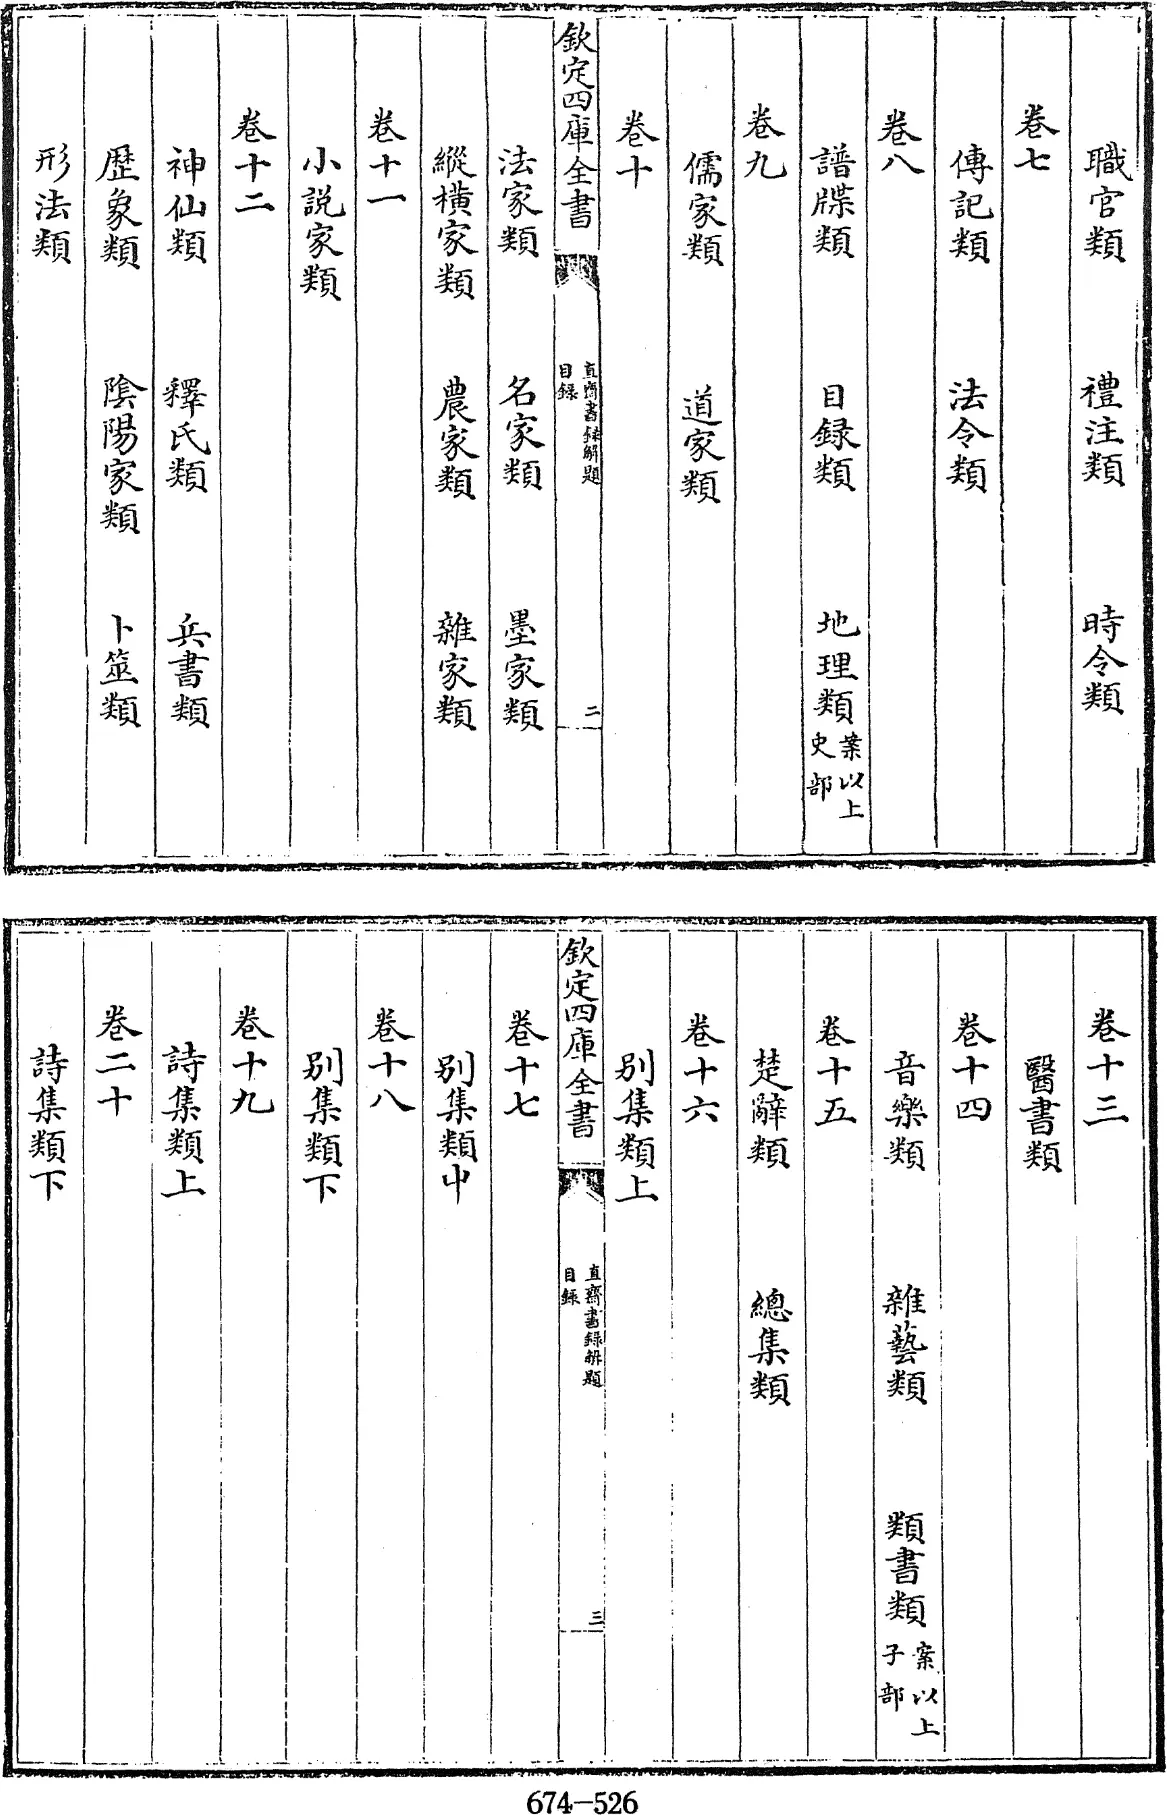 職官類 禮注類 時令類
卷七
傳記類 法令類
卷八
譜牒類 目録類 地理類 案以上史部
卷九
儒家類 道家類
卷十
欽定四庫全書 直齋書録解題 目録 二
法家類 名家類 墨家類
縱横家類 農家類 雜家類
卷十一
小説家類
卷十二
神仙類 釋氏類 兵書類
歴象類 隂陽家類 卜筮類
形法類
卷十三
醫書類
卷十四
音樂類 雜藝類 類書類 案以上子部
卷十五
楚辭類 總集類
卷十六
别集類上
欽定四庫全書 直齋書録解題 目録 三
卷十七
别集類中
卷十八
别集類下
卷十九
詩集類上
卷二十
詩集類下
674-526